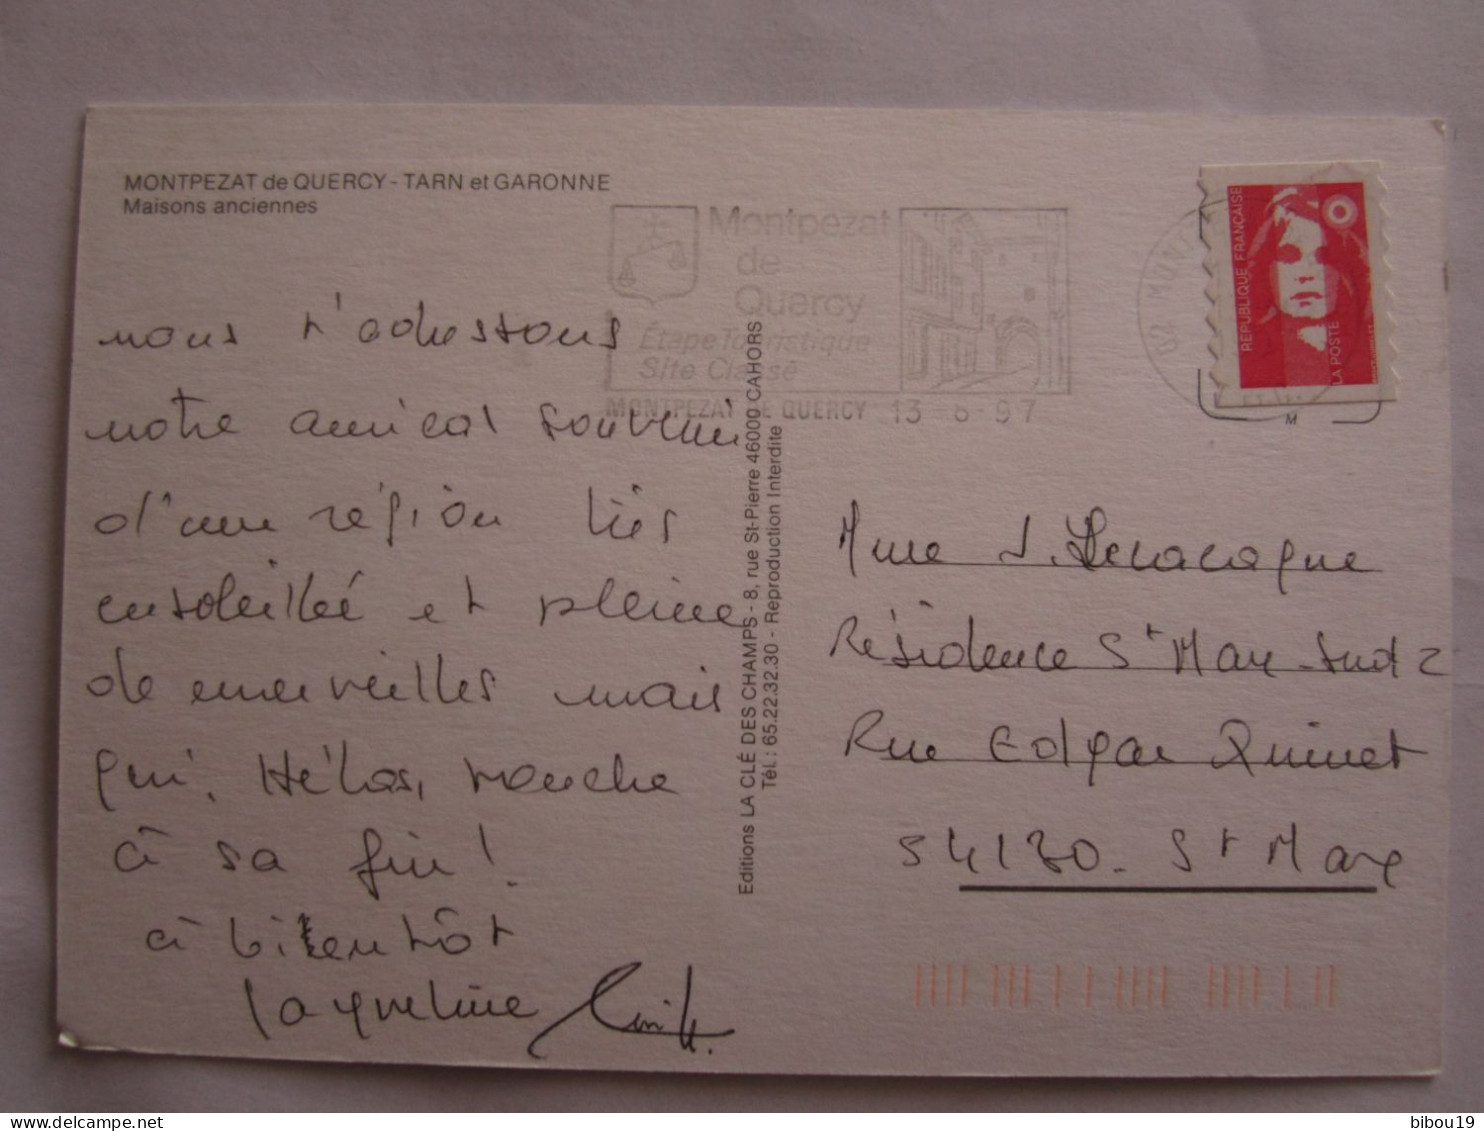 MONTPEZAT de QUERCY - TARN et GARONNE
Maisons anciennes
Montpezat
de
Quercy
Étape Touristique
Site Classé
MONTPEZAT DE QUERCY 13-6-97
REPUBLIQUE FRANÇAISE
LA POSTE
M
nous t'adressons
notre amical souvenir
d'une région très
ensoleillée et pleine
de merveilles mais
qui, Hélas, touche
à sa fin!
à bientôt
Jacqueline
Editions LA CLÉ DES CHAMPS - 8, rue St-Pierre 46000 CAHORS
Tél. : 65.22.32.30 - Reproduction Interdite
Mme J.
Résidence St Max-Sud 2
Rue Edgar Quinet
54130 - St Max
bibou19